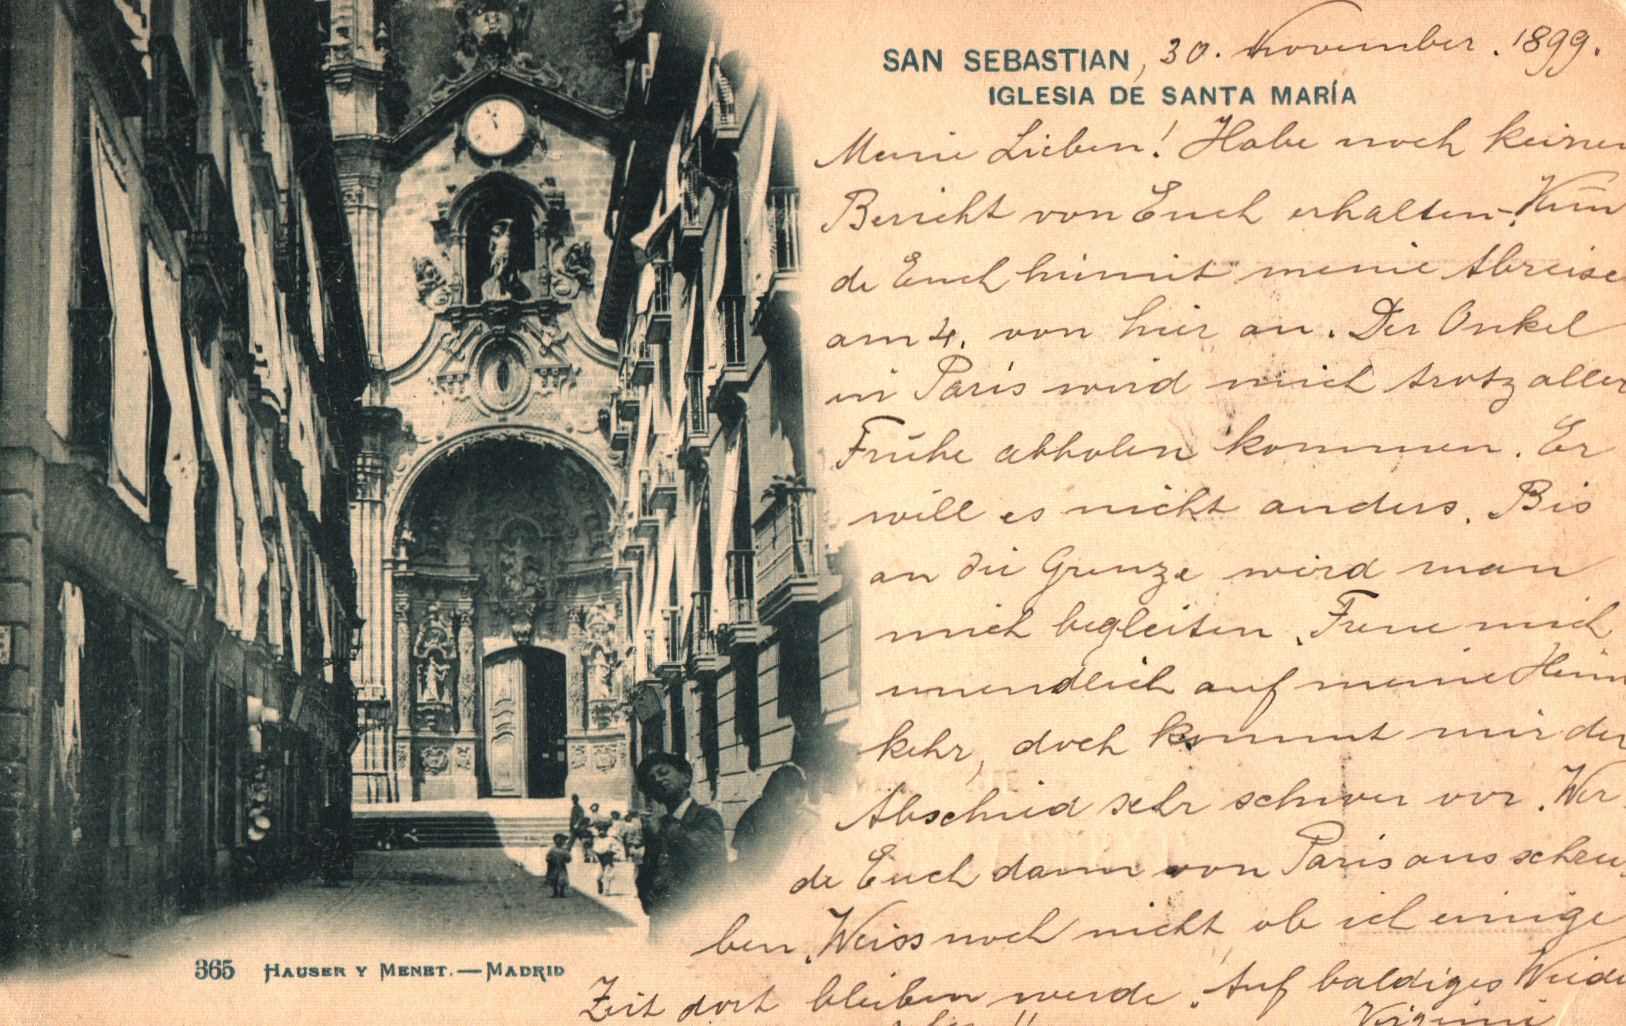 SAN SEBASTIAN, 30. November. 1899.
IGLESIA DE SANTA MARÍA
Meine Lieben! Habe noch keinen
Bericht von Euch erhalten-. Kün
de Euch hiemit meine Abreise
am 4. von hier an. Der Onkel
in Paris wird mich trotz aller
Frühe abholen kommen. Er
will es nicht anders. Bis
an die Grenze wird man
mich begleiten. Freue mich
unendlich auf meine Heim
kehr, doch kommt mir der
Abschied sehr schwer vor. Wer
de Euch dann von Paris aus schrei
ben. Weiss noch nicht ob ich einige
Zeit dort bleiben werde. Auf baldiges Wieder
365 HAUSER Y MENET.—MADRID